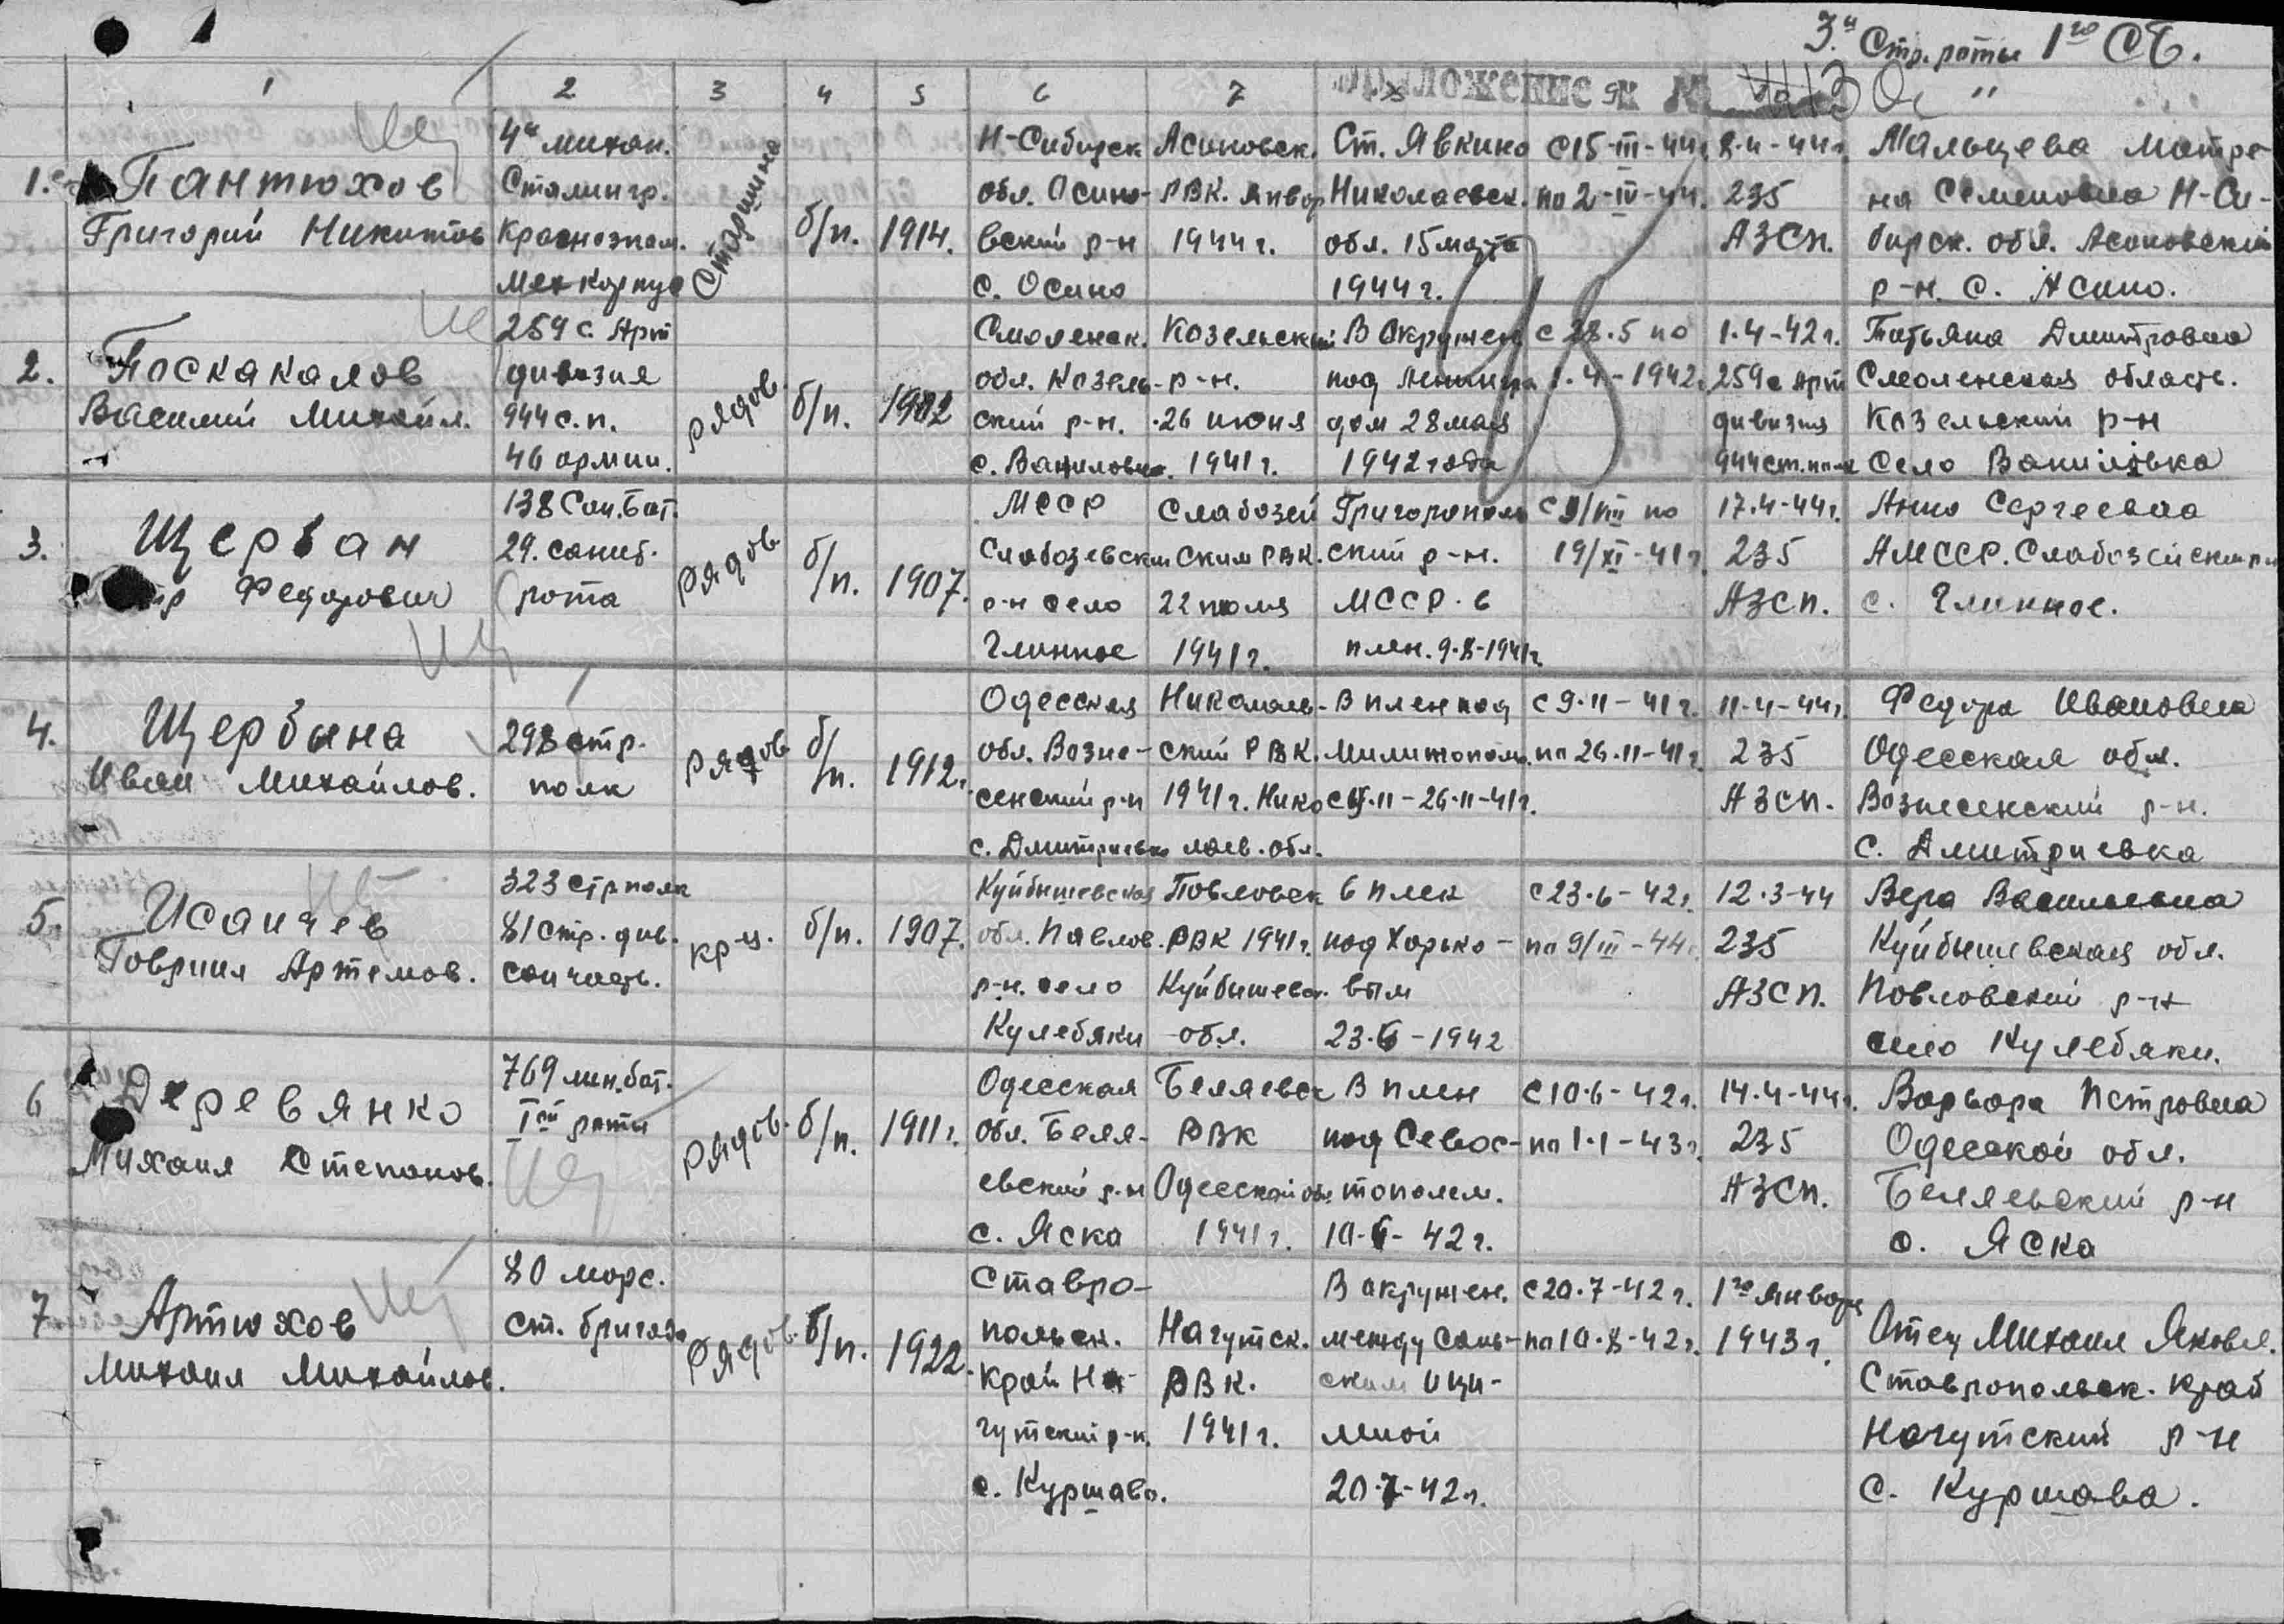 3й Стр. роты 1го СБ.
Приложение к №
1 2 3 4 5 6 7 8 9 10 "
1. Пантюхов
Григорий Никитов
4й михан.
Сталингр.
Краснознам.
мехкорпус
Старшина
б/п.
1914.
Н-Сибирск
обл. Осино-
вский р-н
с. Осино
Асиновск.
РВК. Январ
1944 г.
Ст. Явкино
Николаевск.
обл. 15 марта
1944 г.
с 15-III-44г.
по 2-IV-44.
8-4-44г.
235
АЗСП.
Мальцева Матре-
на Семеновна Н-Си-
бирск. обл. Асиновский
р-н. с. Асино.
2. Поскакалов
Василий Михайл.
259 с. Арт
дивизия
944 с.п.
46 армии.
рядов.
б/п.
1902
Смоленск.
обл. Козель-
ский р-н.
с. Вениловка.
Козельский
р-н.
26 июня
1941 г.
В Окружен
под Ленингра
дом 28 мая
1942 года
с 28.5 по
1.4-1942г.
1.4-42г.
259с Арт
дивизия
944 ст. полк
Татьяна Дмитровна
Смоленская область.
Козельский р-н
Село Вениловка
3. Щербан
Федорович
138 Сан. Бат.
29. санит.
рота
рядов.
б/п.
1907.
МССР
Слабозевский
р-н село
Глинное
Слабозей
ским РВК.
22 июля
1941 г.
Григорополь
ский р-н.
МССР. в
плен. 9-8-1941г.
с 9/VIII по
19/XI-41г.
17.4-44г.
235
АЗСП.
Анна Сергеевна
АМССР. Слабозейский р-н
с. Глинное.
4. Щербына
Иван Михайлов.
298 стр.
полк
рядов
б/п.
1912г.
Одесская
обл. Возне-
сенский р-н
с. Дмитриевка
Николаев-
ский РВК.
1941 г. Нико
лаев. обл.
В плен под
Милитополм.
с 9.11-26-11-41г.
с 9-11-41г.
по 26-11-41г.
11-4-44г.
235
АЗСП.
Федора Ивановна
Одесская обл.
Вознесенский р-н.
с. Дмитриевка
5. Исанчев
Говриил Артемов.
323 стр полк
81 стр. див.
сан часть.
кр-ц.
б/п.
1907.
Куйбышевская
обл. Павлов.
р-н. село
Кулебяки
Повловск
РВК 1941г.
Куйбышевск.
обл.
в плен
под Харько-
вым
23-6-1942
с 23-6-42г.
по 9/III-44г.
12-3-44
235
АЗСП.
Вера Васильевна
Куйбышевская обл.
Повловский р-н
село Кулебяки.
6 Деревянко
Михаил Степанов.
769 мин. бат.
Iой роты
рядов.
б/п.
1911г.
Одесская
обл. Беля-
евский р-н
с. Яска
Беляевск
РВК
Одесской обл.
1941 г.
В плен
под Севос-
тополем.
10-6-42г.
с 10-6-42г.
по 1-1-43г.
14-4-44г.
235
АЗСП.
Варвара Петровна
Одесской обл.
Беляевский р-н
с. Яска
7. Артюхов
Михаил Михайлов.
80 морс.
ст. бригада
Рядов.
б/п.
1922.
Ставро-
польск.
край На-
гутский р-н.
с. Куршава.
Нагутск.
РВК.
1941 г.
В окружен.
между Саль-
ским и Ци-
мной
20-7-42г.
с 20-7-42г.
по 10-8-42г.
1го января
1943 г.
Отец Михаил Яковл.
Ставропольск. край
Нагутский р-н
с. Куршава.